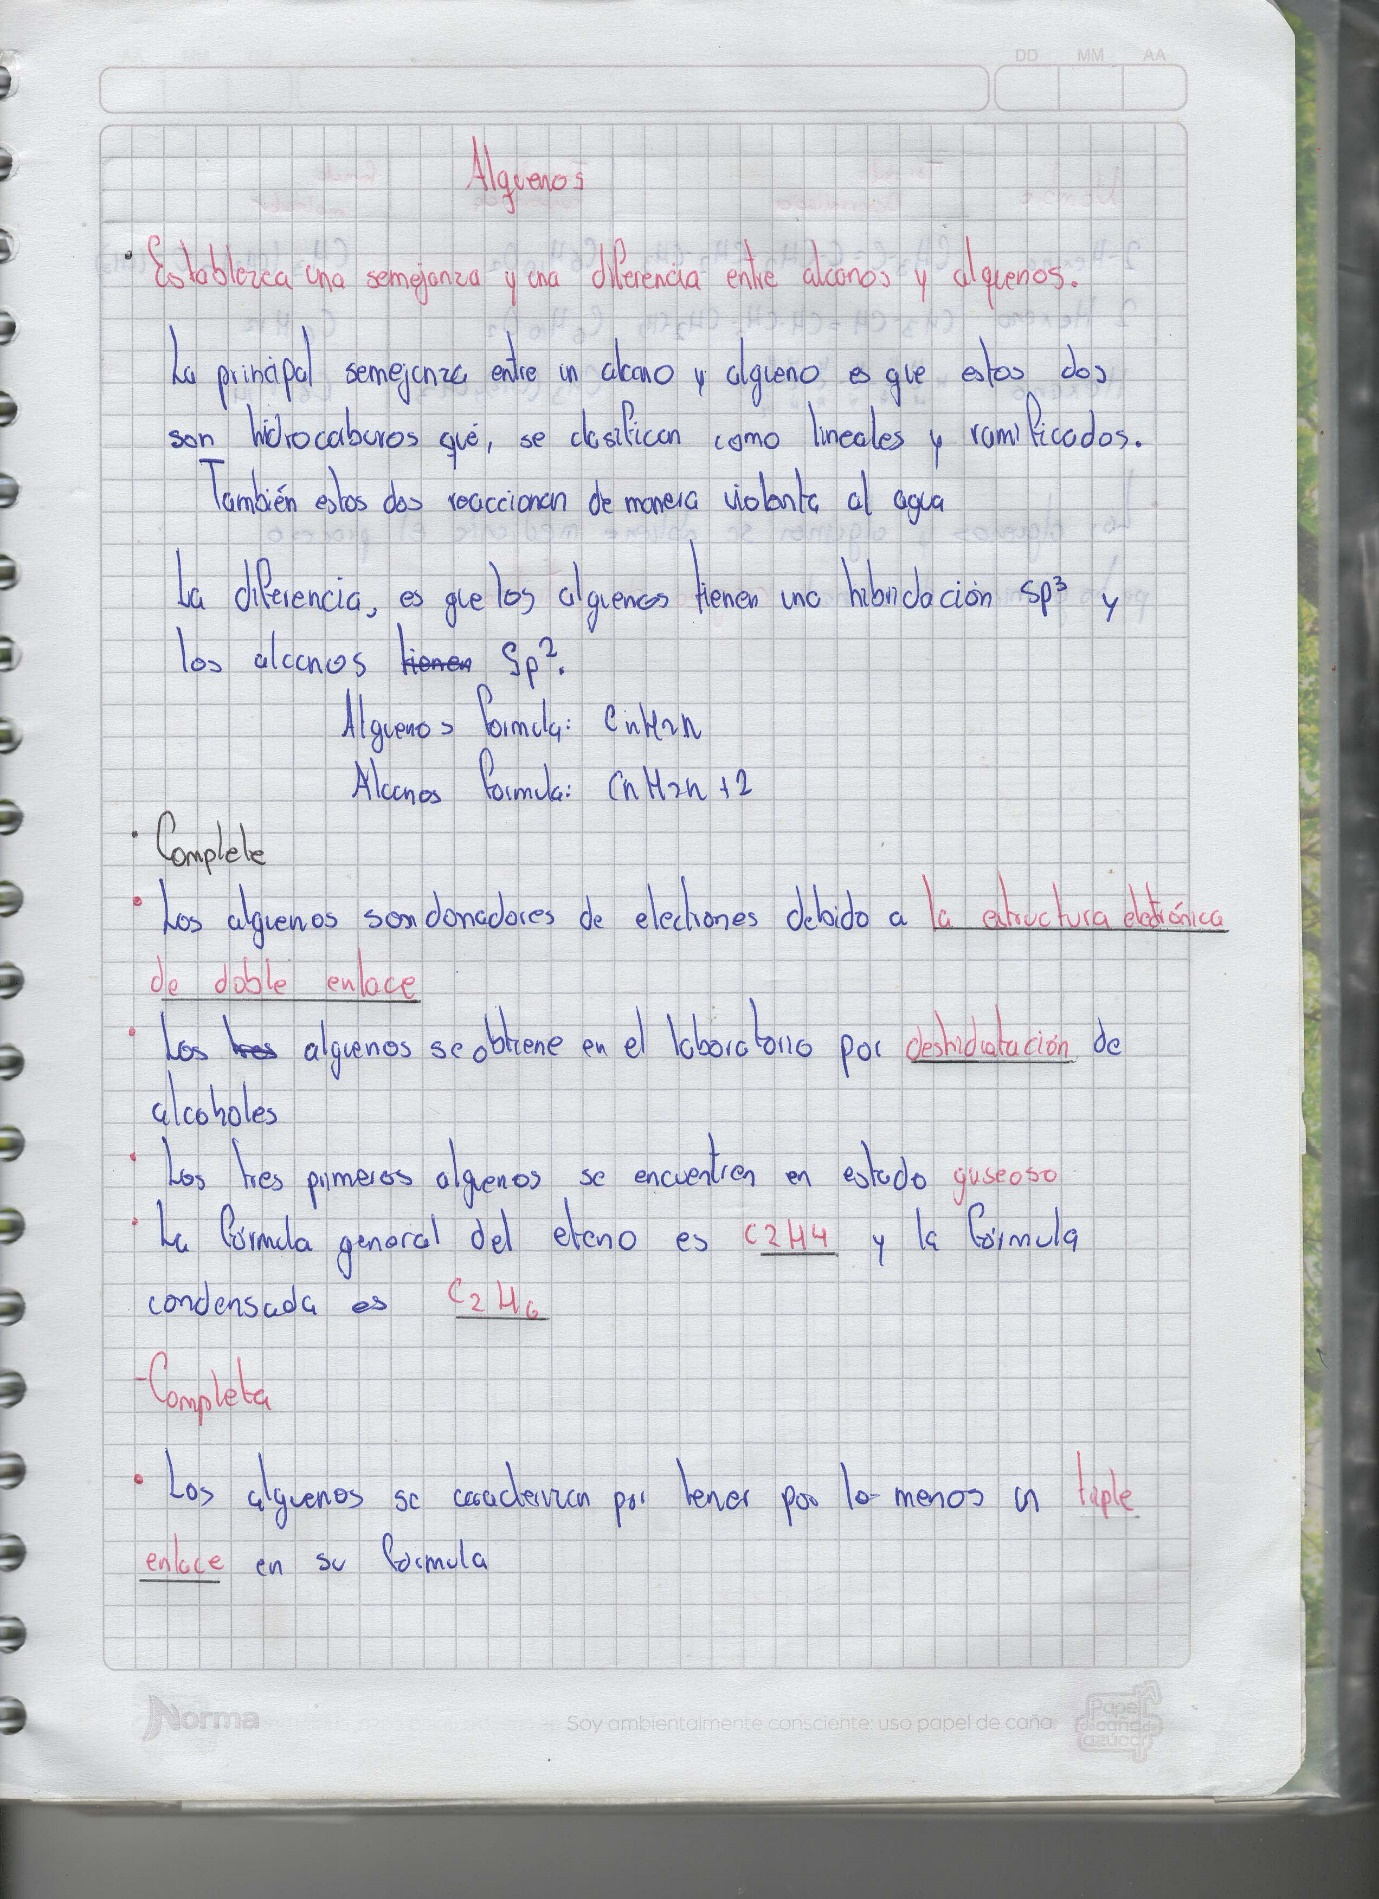 DD MM AA
Alquenos
• Establezca una semejanza y una diferencia entre alcanos y alquenos.
La principal semejanza entre un alcano y alqueno es que estos dos
son hidrocaburos qué, se clasifican como lineales y ramificados.
También estos dos reaccionan de manera violenta al agua
La diferencia, es que los alquenos tienen una hibridación sp³ y
los alcanos tienen Sp².
Alquenos formula: CnH2n
Alcanos formula: CnH2n+2
• Complete
• Los alquenos son donadores de electrones debido a la estructura electrónica
de doble enlace
• Los tres alquenos se obtiene en el laboratorio por deshidratación de
alcoholes
• Los tres primeros alquenos se encuentren en estado guseoso
• La fórmula general del eteno es C2H4 y la fórmula
condensada es C2H6
- Completa
• Los alquenos se caracterizan por tener por lo menos un triple
enlace en su formula
Norma
Soy ambientalmente consciente: uso papel de caña
Papel
de caña de
azúcar